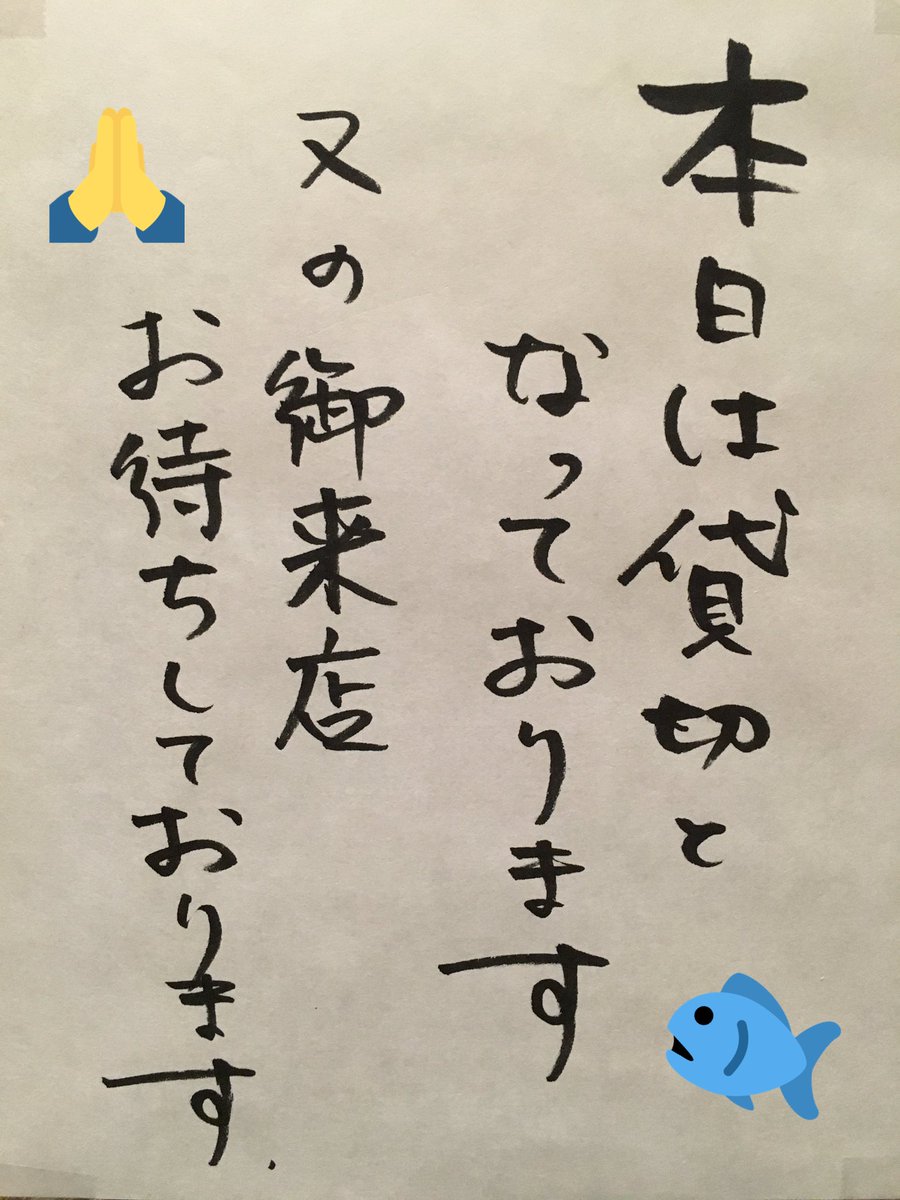 本日は貸切と
なっております
又の御来店
お待ちしております.